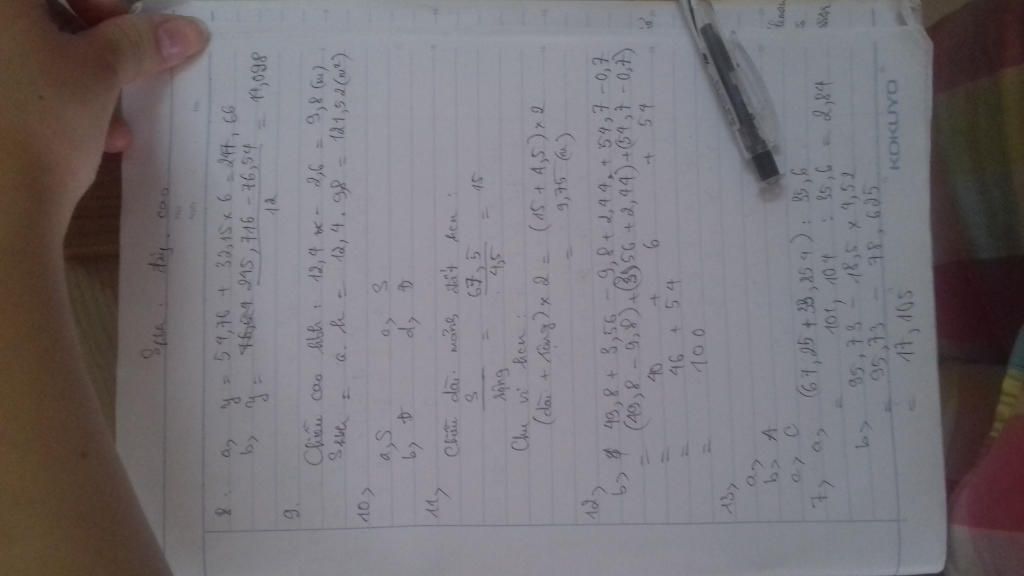 Shbh : đáy . cao
8. a, y = 54,76 + 32,15 x 6 = 247,66
b, y = 215,716 - 76,54 = 11,098
12
9. Chiều cao hbh : 12,4 - 2,6 = 9,8 (m)
Shbh = a . h = 12,4 . 98 = 121,52 (m²)
10, a, S a, S
b, Đ d, Đ
11, Chiều dài mảnh đất hcn :
S = 67,5 = 15
rộng 4,5
Chu vi hcn :
(dài + rộng) x 2 = (15 + 4,5) x 2
= 9,75 (m)
12,
b, 49,8 + 3,56 - 9,8 + 2,44 + 54,7 - 0,7
= (49,8 - 9,8) + (3,56 + 2,44) + (54,7 - 0,7)
= 40 + 6 + 54
= 46 + 54
= 100
13,
a,
b, A
a, C
7, a, (67,25 + 33,854) : 35,6
= 101,104 : 35,6 = 2,84
b, 95,73 - 18,5 x 4,52
= 95,73 - 78,625
= 17,105
KOKUYO